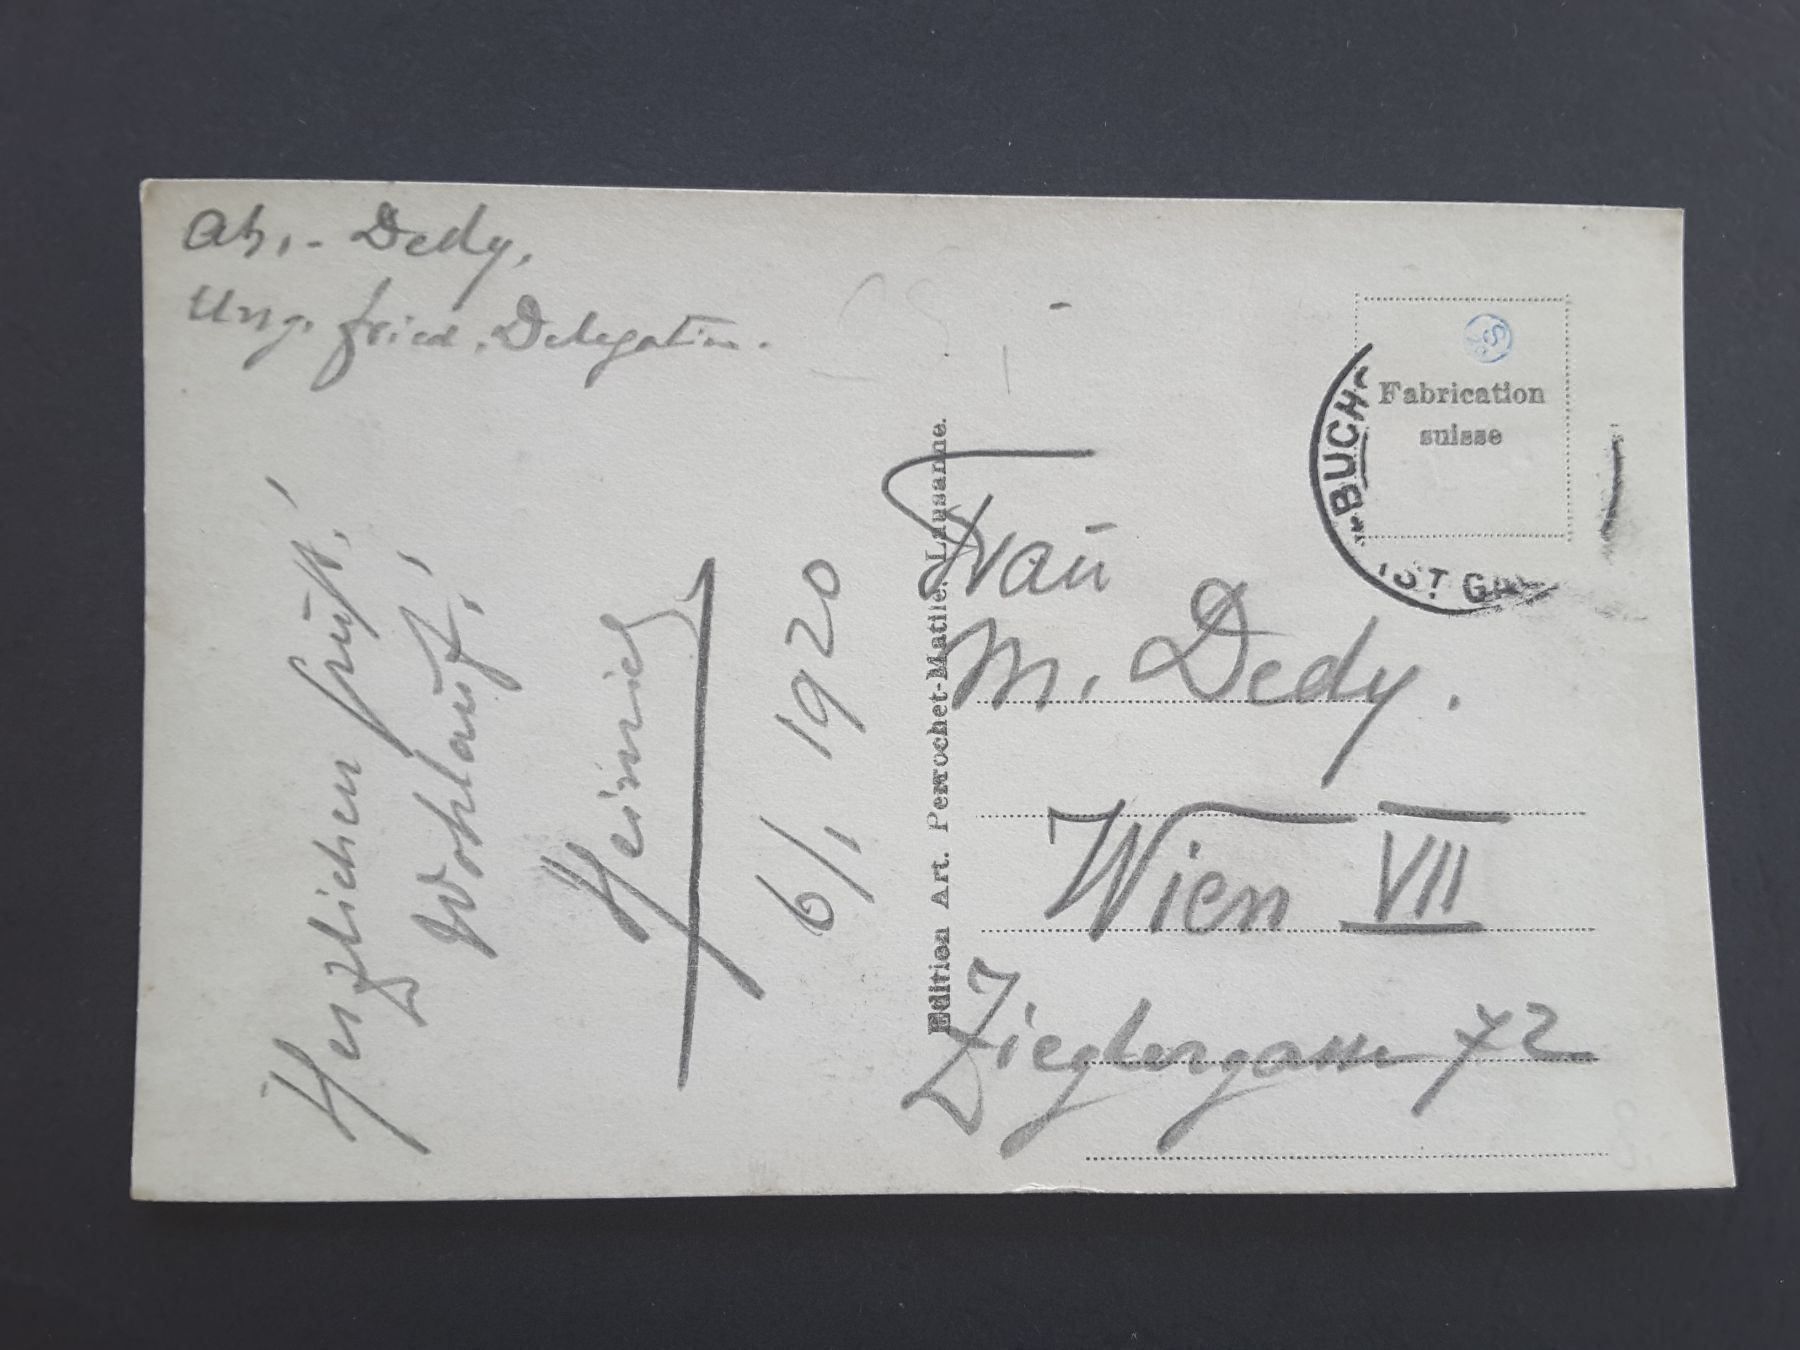 Abs. - Dedy,
Ung. Fried. Delegation.
Herzlichen Gruß!
Wohlauf,
Heinrich
6/1 1920
Edition Art. Perrochet-Matile, Lausanne.
Fabrication
suisse
BUCHS
(ST. GA
Frau
M. Dedy.
Wien VII
Zieglergasse 72